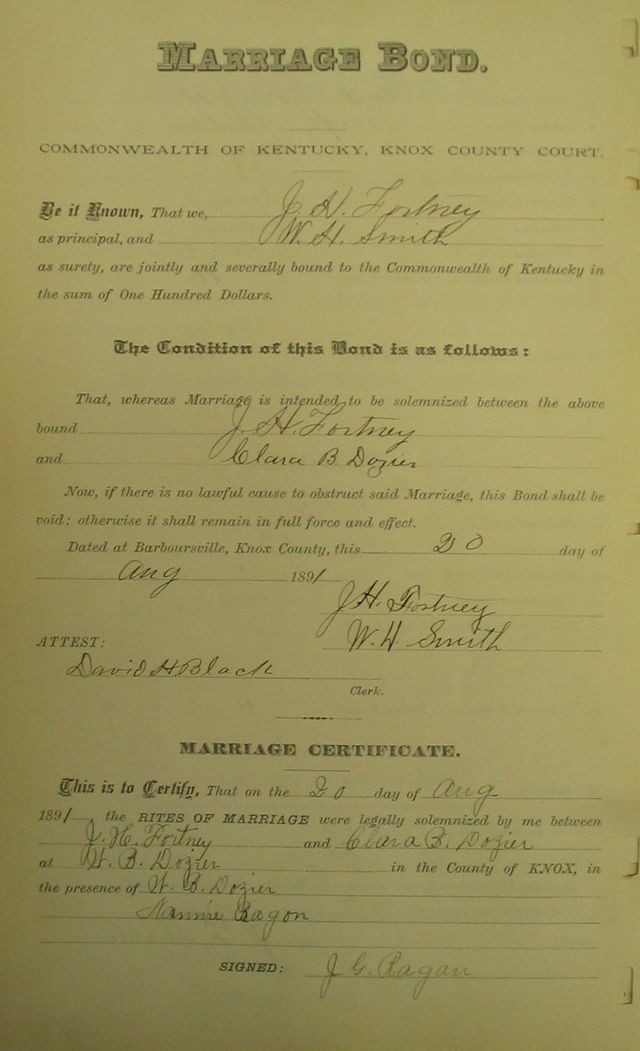 MARRIAGE BOND.
COMMONWEALTH OF KENTUCKY, KNOX COUNTY COURT.
Be it Known, That we, J. H. Fortney
as principal, and W. H. Smith
as surety, are jointly and severally bound to the Commonwealth of Kentucky in
the sum of One Hundred Dollars.
The Condition of this Bond is as follows:
That, whereas Marriage is intended to be solemnized between the above
bound J. H. Fortney
and Clara B. Dozier
Now, if there is no lawful cause to obstruct said Marriage, this Bond shall be
void; otherwise it shall remain in full force and effect.
Dated at Barboursville, Knox County, this 20 day of
Aug 1891
J. H. Fortney
ATTEST: W. H. Smith
David H Black
Clerk.
MARRIAGE CERTIFICATE.
This is to Certify, That on the 20 day of Aug
1891, the RITES OF MARRIAGE were legally solemnized by me between
J. H. Fortney and Clara B. Dozier
at W. B. Dozier in the County of KNOX, in
the presence of W. B. Dozier
Nannie Ragon
SIGNED: J G. Ragan